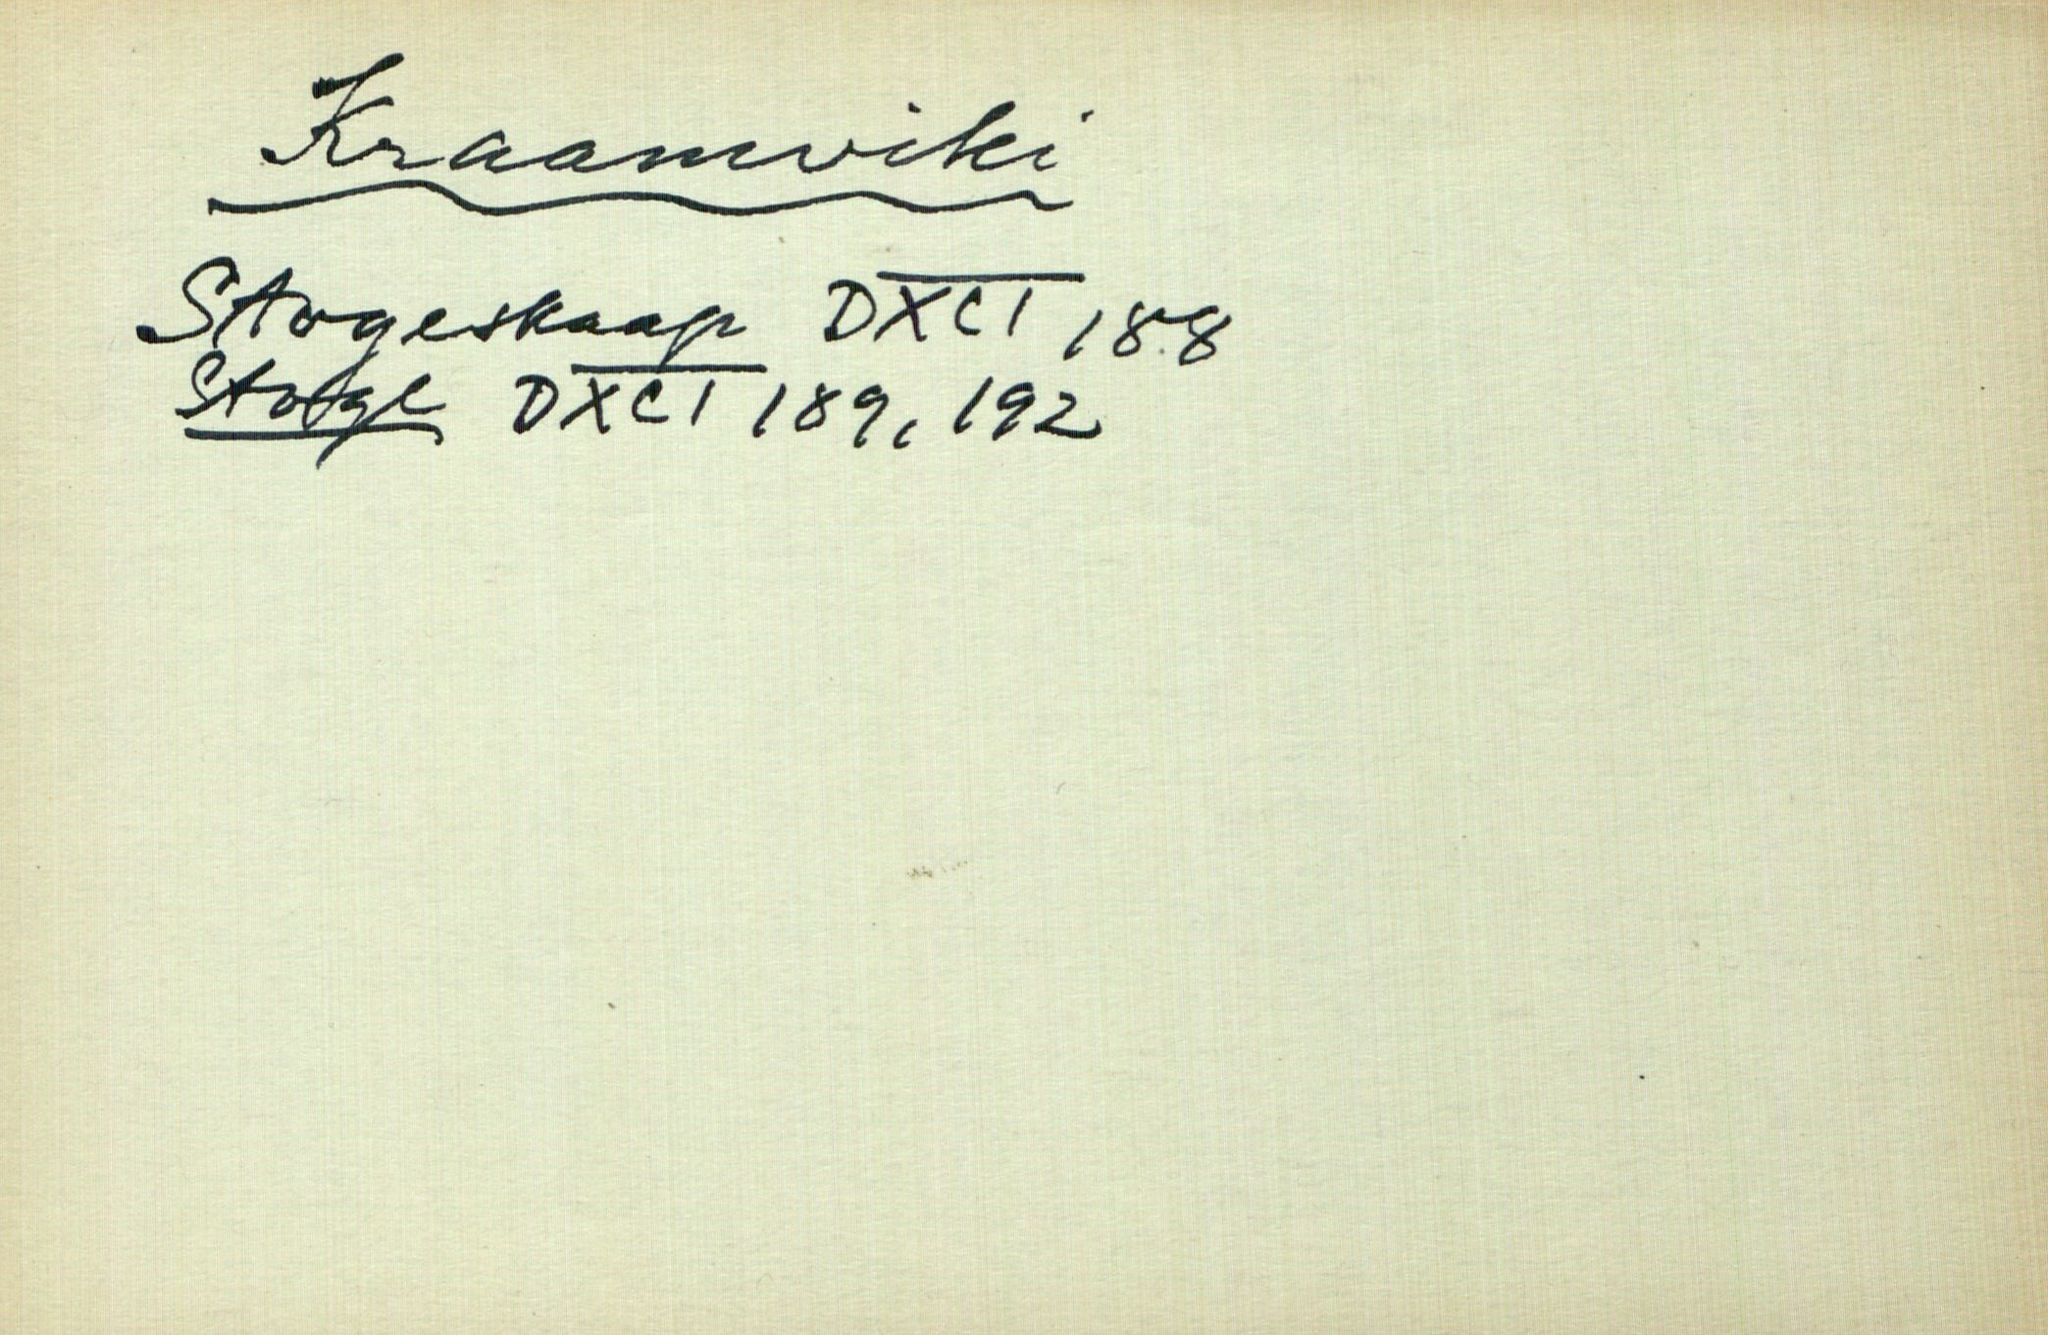 Kraamwiki
Storgeskaap DXCI 188
Storge DXCI 189, 192